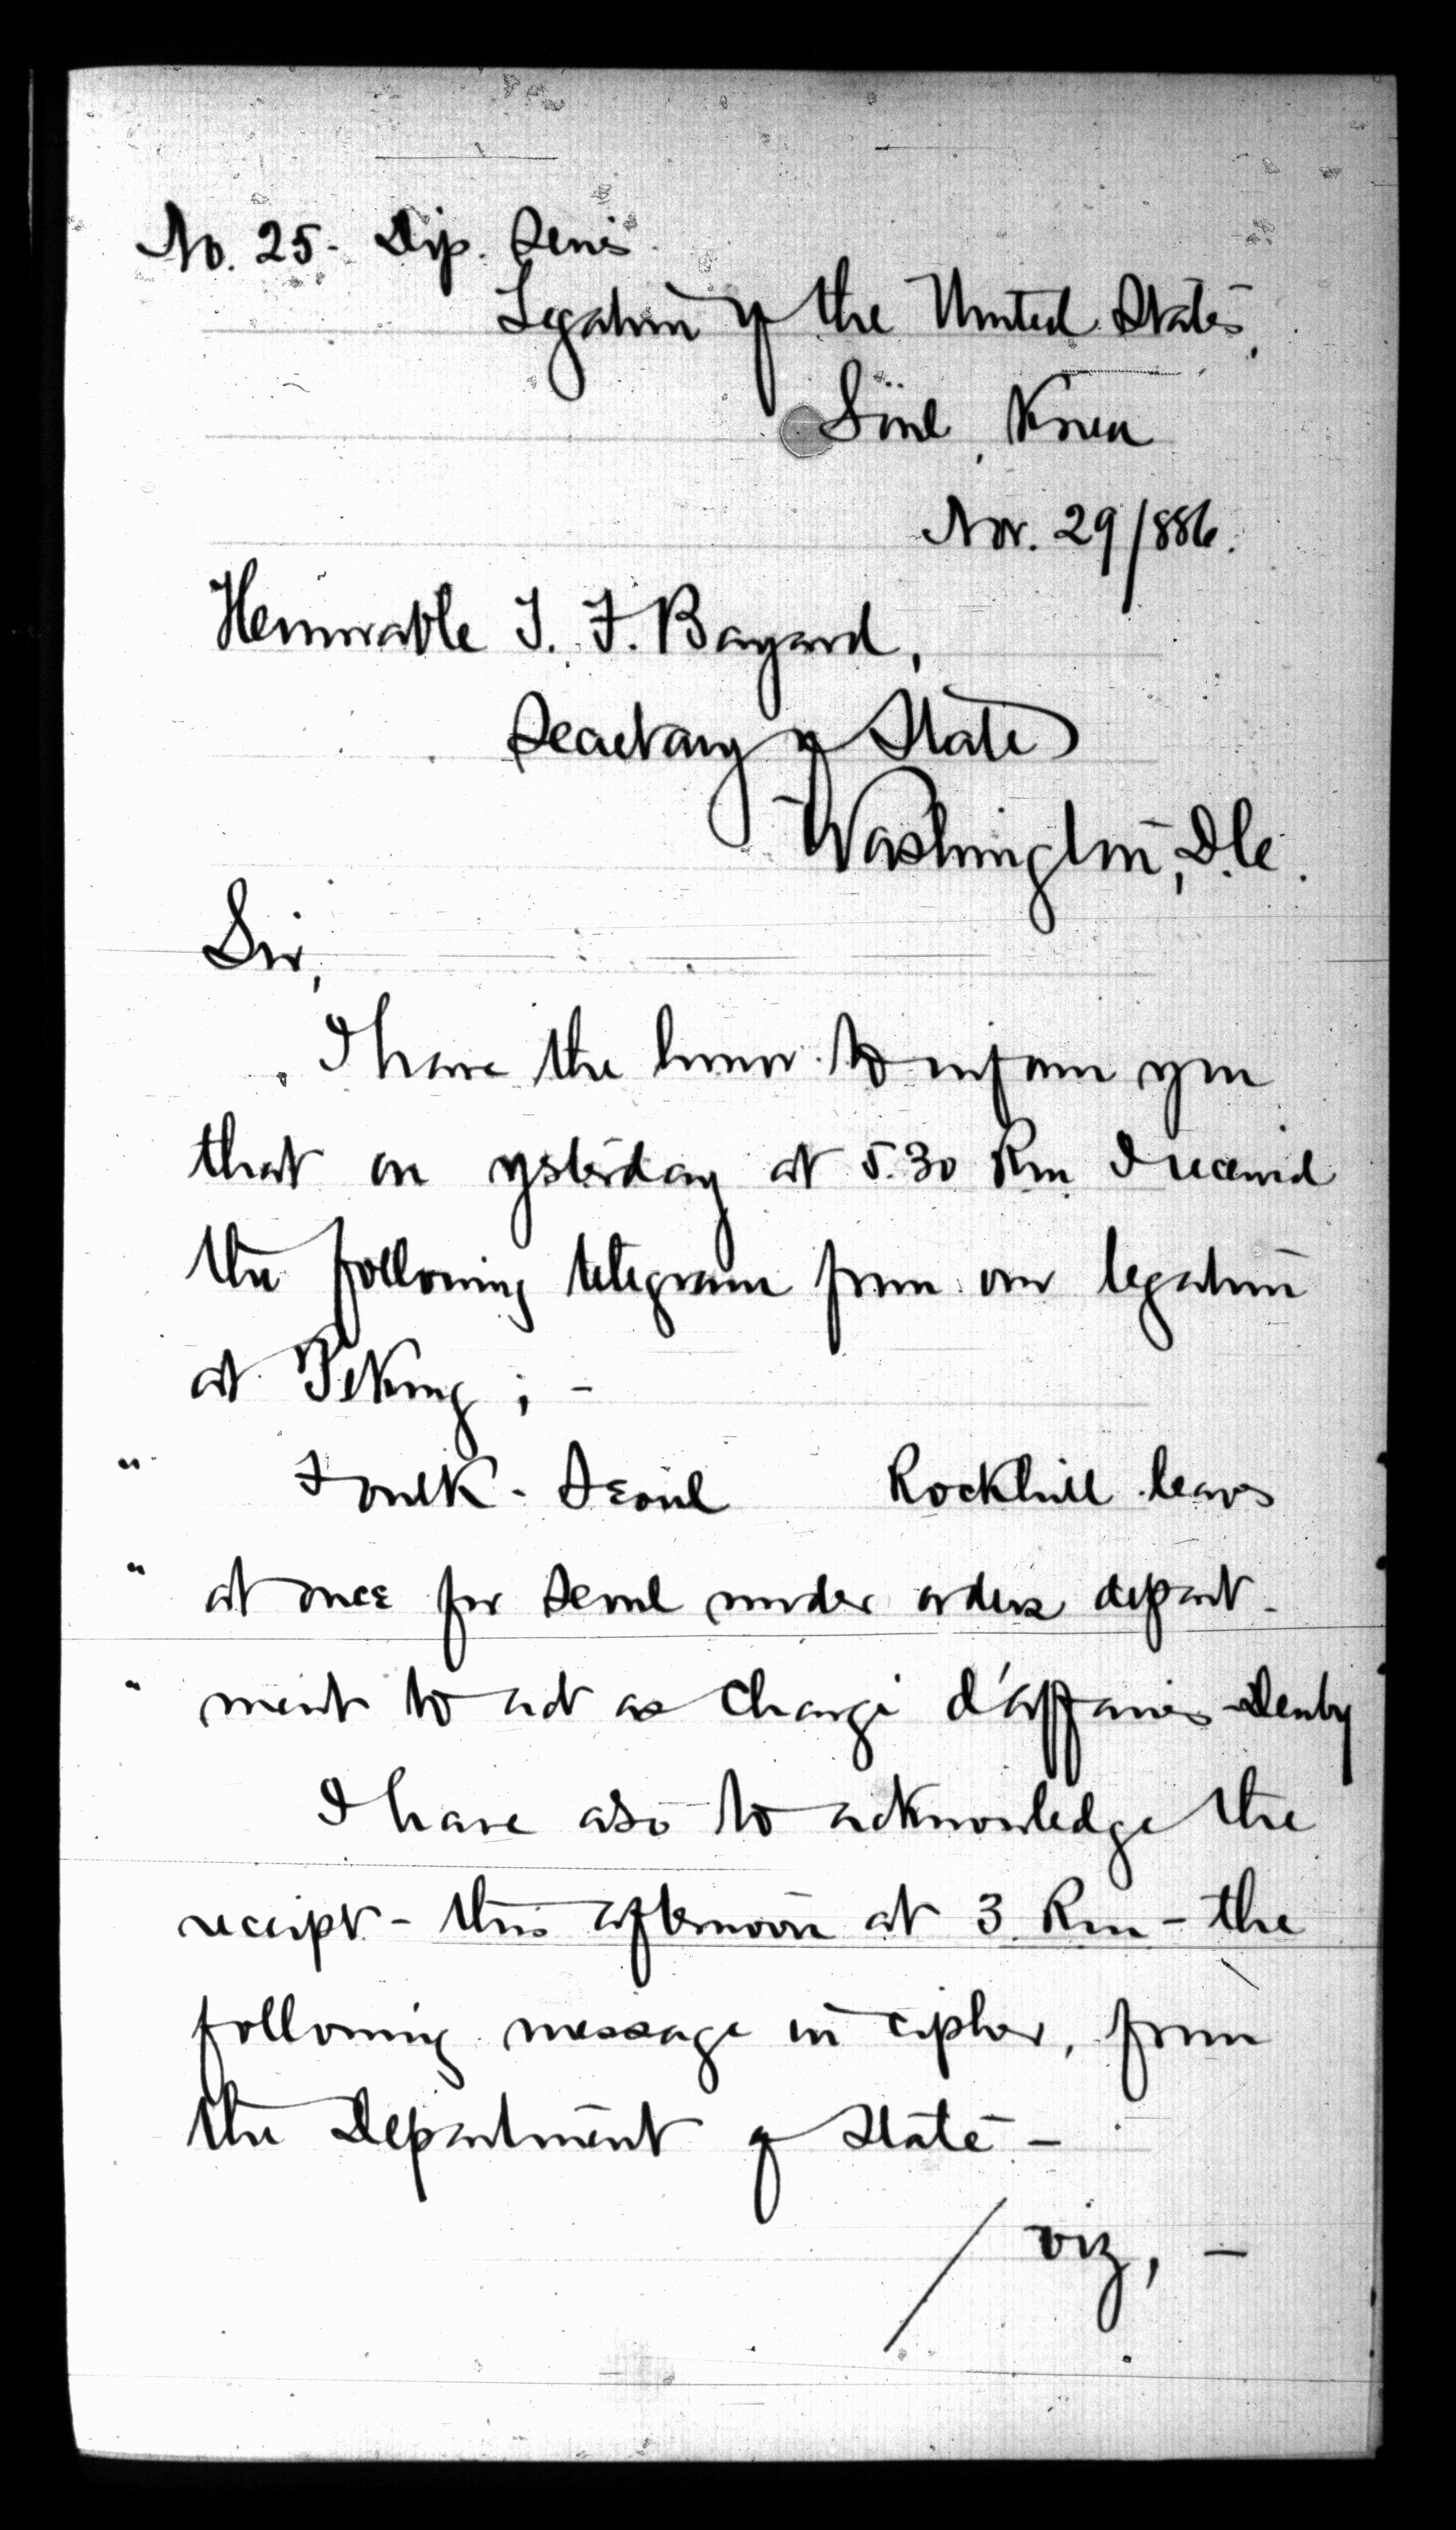 No. 25- Dip. Series
Legation of the United States,
Söul, Korea
Nov. 29/886.
Honorable T. F. Bayard,
Secretary of State
Washington, D.C.
Sir,
I have the honor to inform you
that on ysterday at 5.30 Pm I received
the following telegram from our legation
at Peking ; -
" Foulk - Seoul Rockhill leaves
" at once for Seoul under orders depart-
" ment to act as Chargé d'affaires - Denby
I have also to acknowledge the
receipt - this afternoon at 3 Pm - the
following message in cipher, from
the Department of State -
/ viz, -